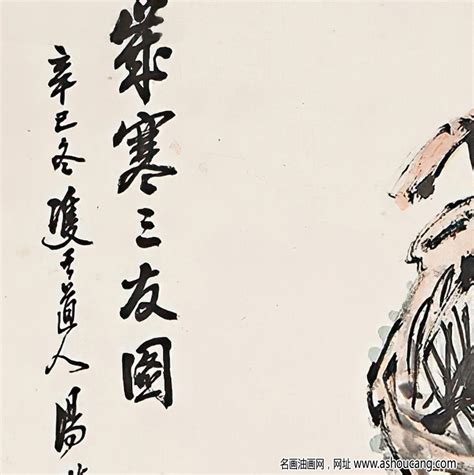 歲寒三友圖
辛巳冬道人陽
名画油画网，网址 www.ashoucang.com